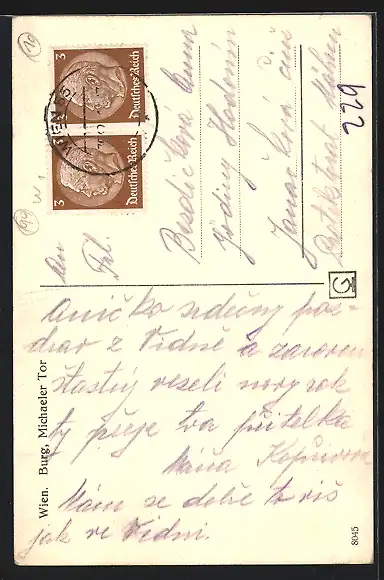 3
Deutsches Reich
3
Deutsches Reich
WIEN
An
Frl.
Jodiny Hodonín
Protektorat Mähren
229
G
Aničko srdečný poz-
drav z Vídně a zároveň
šťastný veselí nový rok
ty přeje tva přítelka
Máňa
Mám se dobře to víš
jak ve Vídni.
Wien. Burg, Michaeler Tor
8045